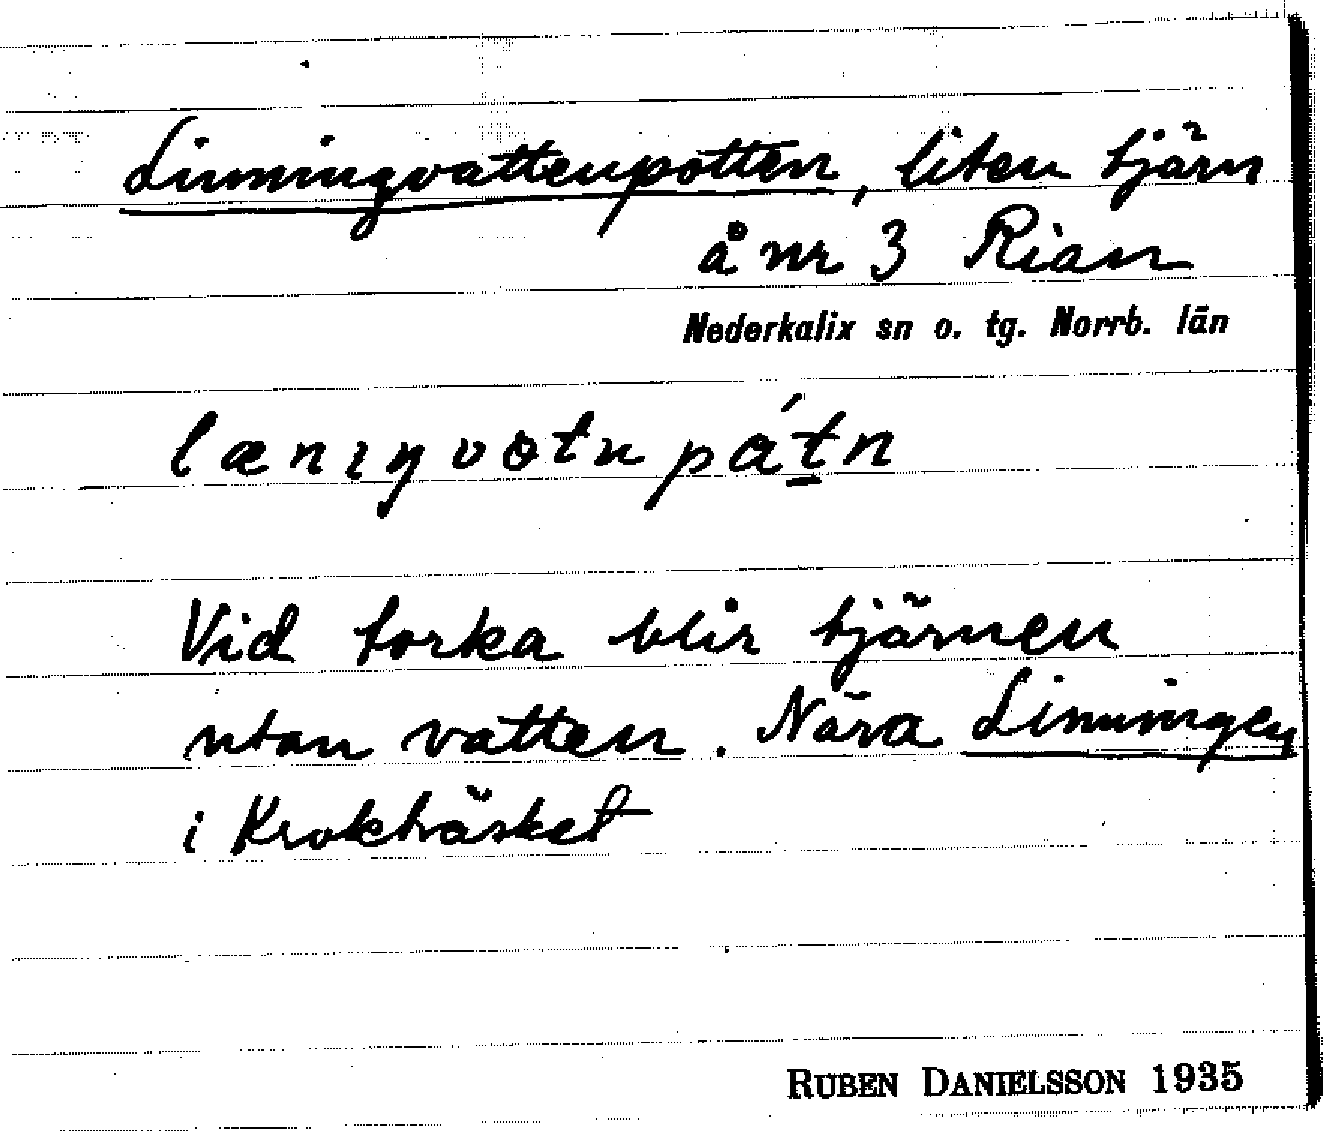 Linningvattenpotten, liten tjärn
å nr 3 Rian
Nederkalix sn o. tg. Norrb. län
lænıŋvotnpátn
Vid torka blir tjärnen
utan vatten. Nära Linningen
i Krokträsket
RUBEN DANIELSSON 1935